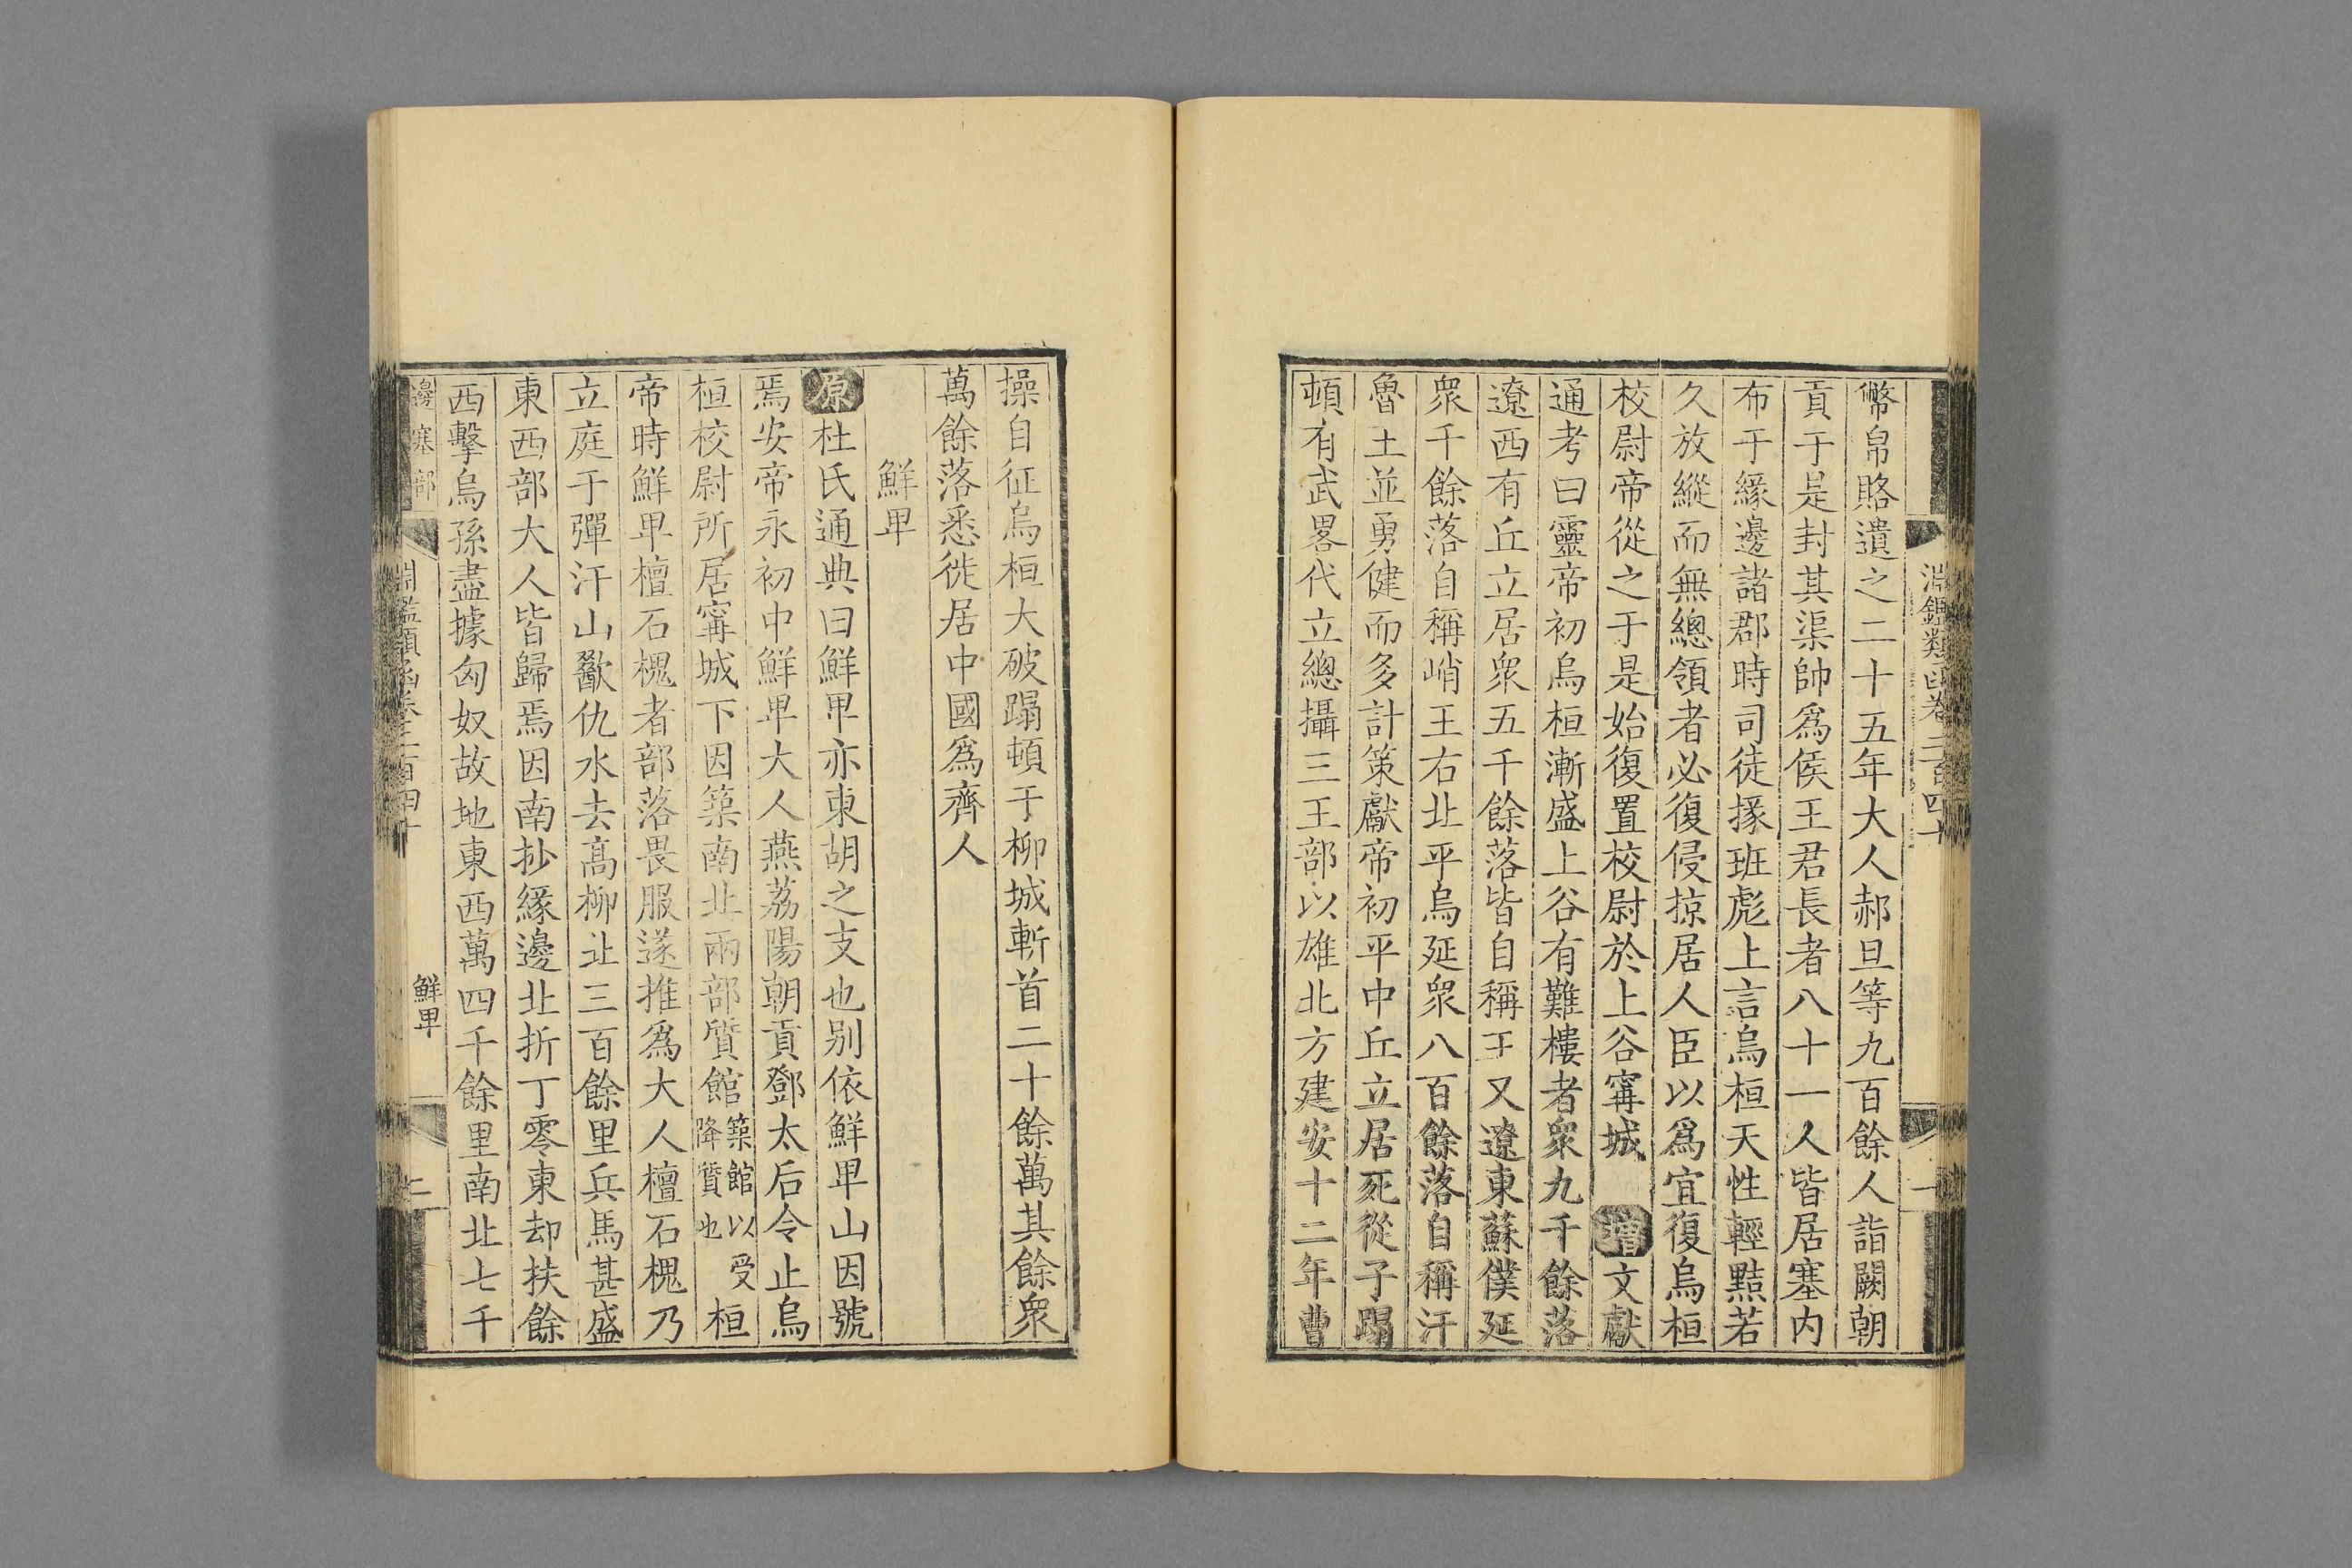 淵鑑類函卷二百四十
幣帛賂遺之二十五年大人郝旦等九百餘人詣闕朝
貢于是封其渠帥爲侯王君長者八十一人皆居塞内
布于緣邊諸郡時司徒掾班彪上言烏桓天性輕黠若
久放縱而無總領者必復侵掠居人臣以爲宜復烏桓
校尉帝從之于是始復置校尉於上谷寗城 增文獻
通考曰靈帝初烏桓漸盛上谷有難樓者衆九千餘落
遼西有丘立居衆五千餘落皆自稱王又遼東蘇僕延
衆千餘落自稱峭王右北平烏延衆八百餘落自稱汗
魯王並勇健而多計策獻帝初平中丘立居死從子蹋
頓有武畧代立總攝三王部以雄北方建安十二年曹
操自征烏桓大破蹋頓于柳城斬首二十餘萬其餘衆
萬餘落悉徙居中國爲齊人
鮮卑
原杜氏通典曰鮮卑亦東胡之支也别依鮮卑山因號
焉安帝永初中鮮卑大人燕荔陽朝貢鄧太后令止烏
桓校尉所居寗城下因築南北兩部質館築館以受降質也桓
帝時鮮卑檀石槐者部落畏服遂推爲大人檀石槐乃
立庭于彈汗山歠仇水去髙柳北三百餘里兵馬甚盛
東西部大人皆歸焉因南抄緣邊北折丁零東却扶餘
西擊烏孫盡據匈奴故地東西萬四千餘里南北七千
邊塞部 淵鑑類函卷二百四十 鮮卑 二